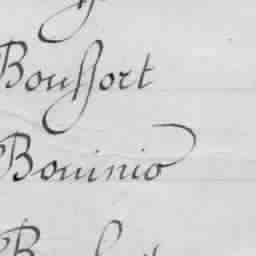 Boussort
Bouinio